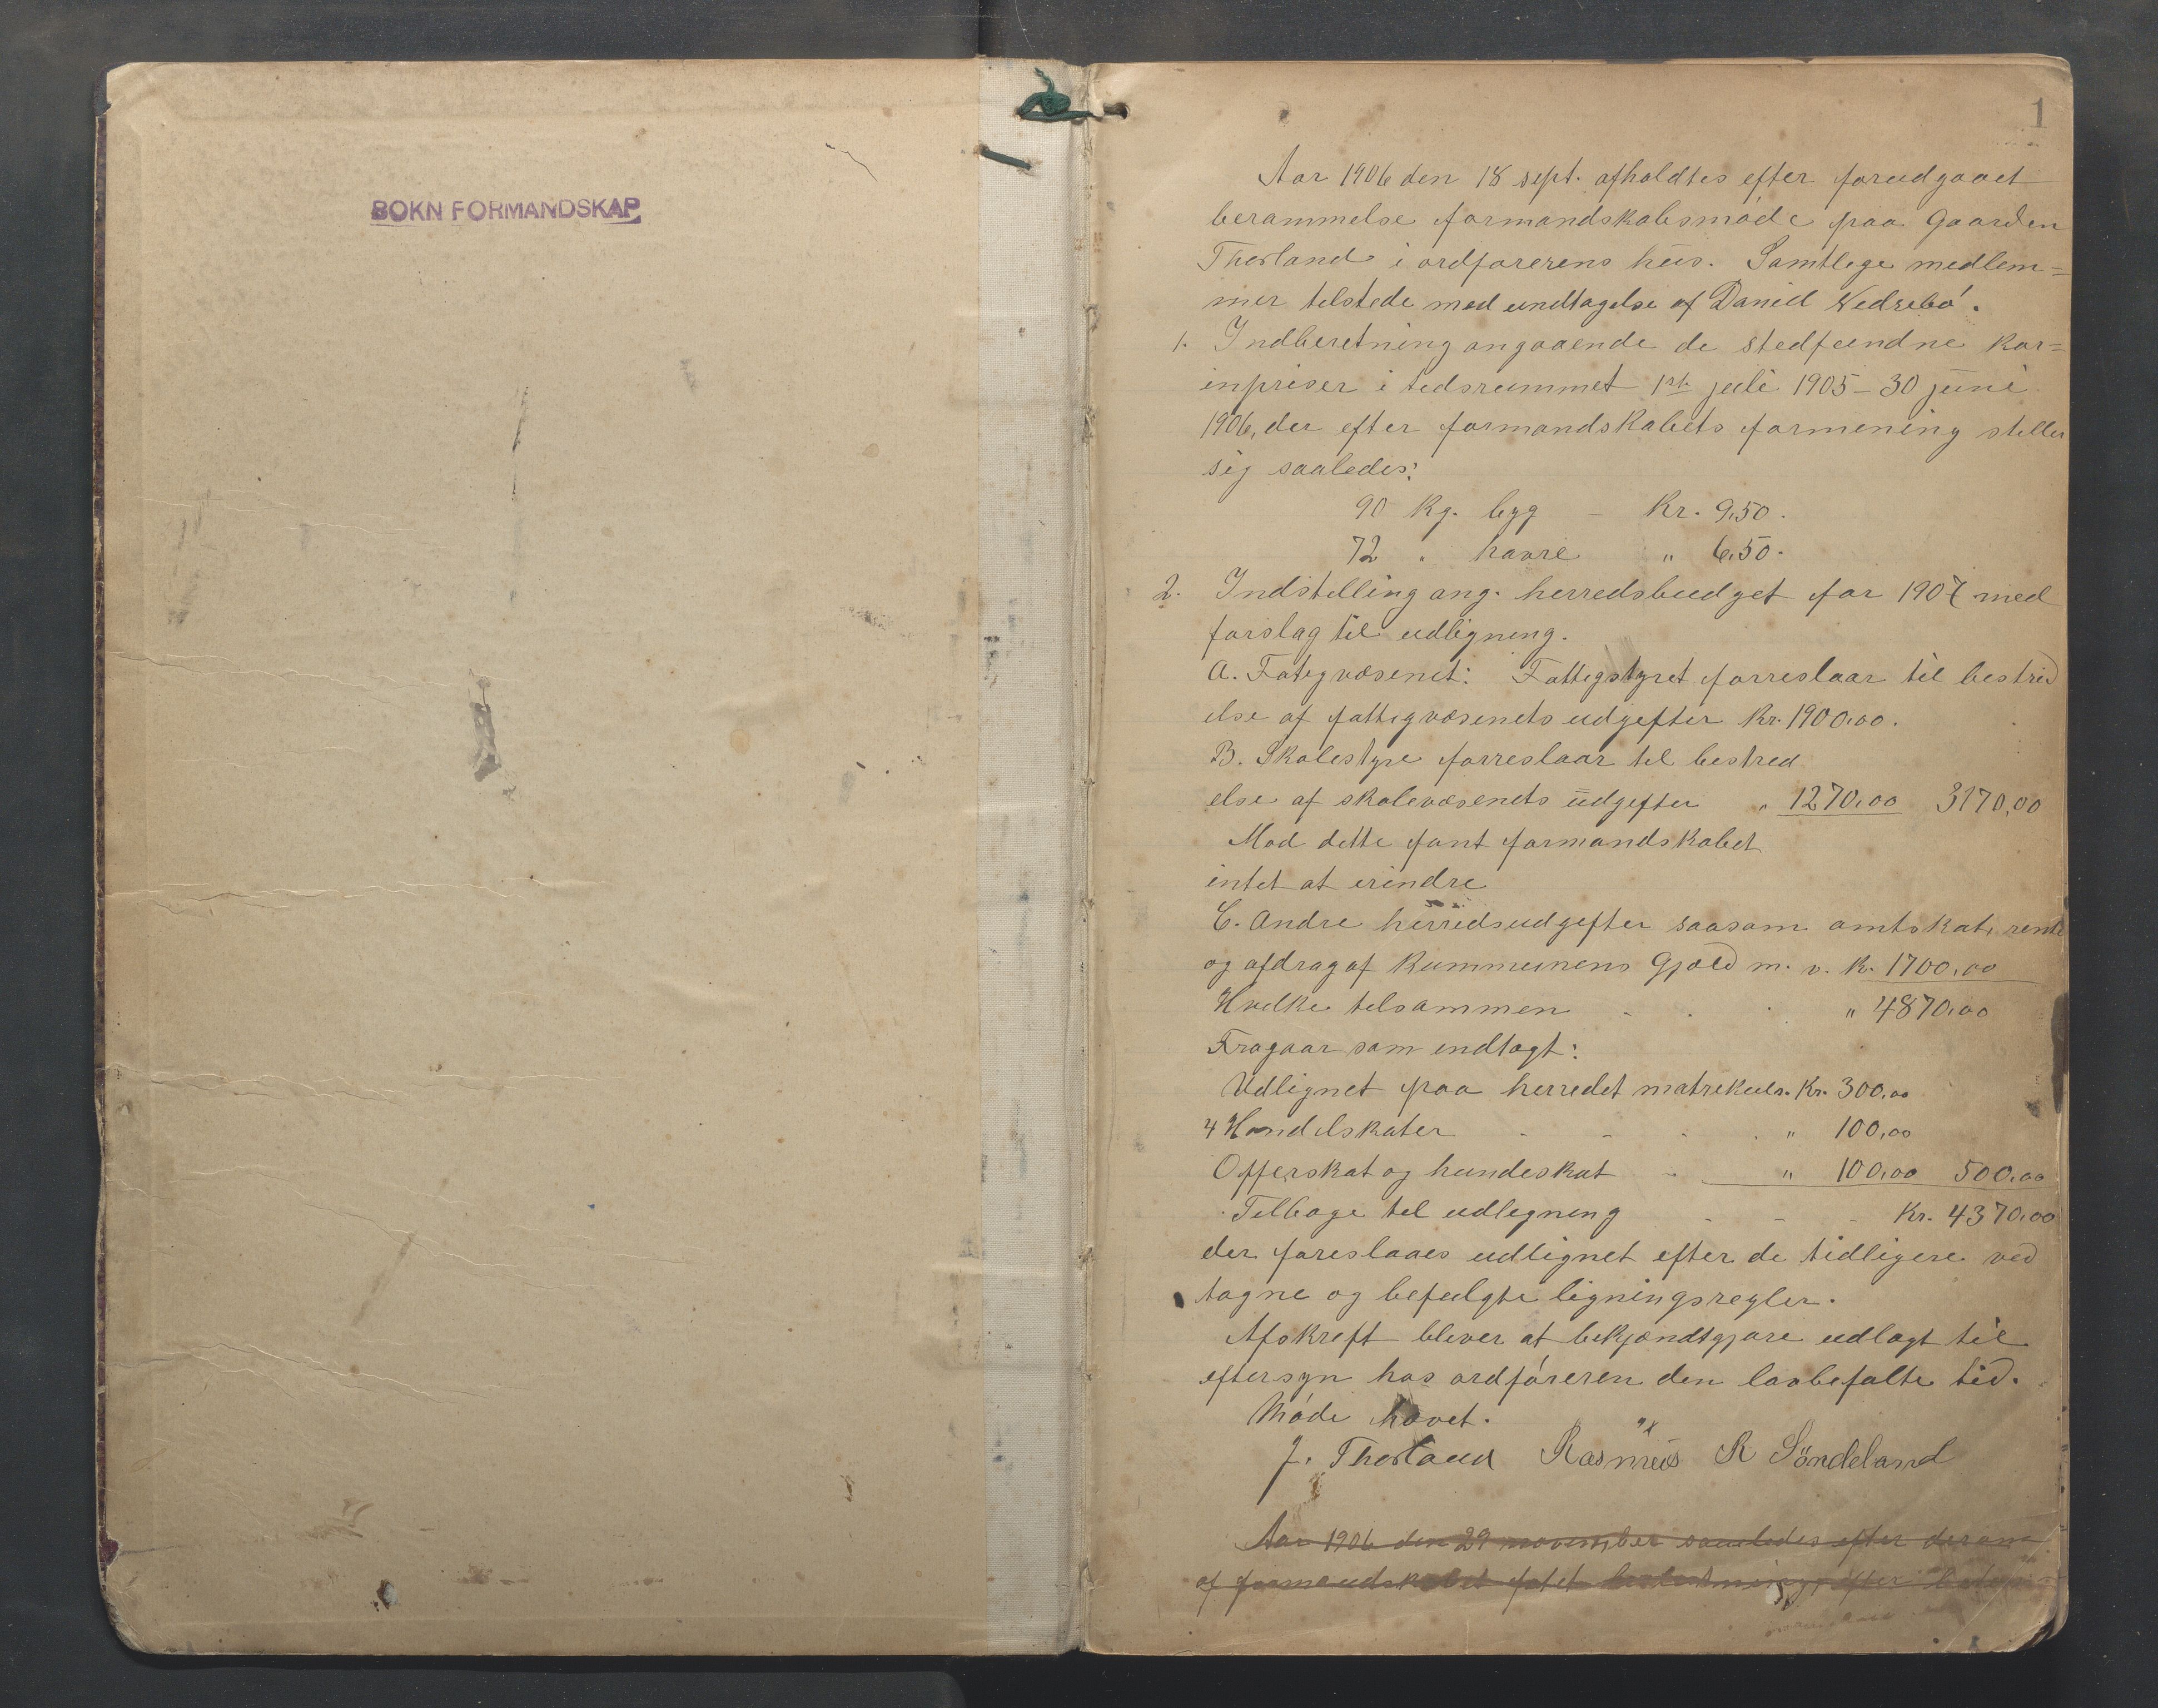 BOKN FORMANDSKAP
1
Aar 1906 den 18 sept. afholdtes efter forudgaaet
berammelse formandskabsmøde paa gaarden
Thorland i ordførerens hus. Samtlege medlem=
mer telstede med undtagelse af Daniel Wedrebø.
1. Indberetning angaaende de stedfundne kor=
inpriser i tedsrummet 1st juli 1905 - 30 juni
1906, der efter formandskabets formening steller
sig saaledes:
90 kg. byg - Kr. 9,50.
72 " havre " 6,50.
2. Indstelling ang. herredsbudget for 1907 med
forslag til udligning.
A. Fatigvæsenet: Fattigstyret forreslaar til bestrid
else af fattigvæsenets udgefter kr. 1900,00.
B. Skolestyre forreslaar tel bestred
else af skolevæsenets udgefter " 1270,00 3170,00
Mod dette fant formandskabet
intet at erindre
C. Andre herredsudgefter saasom amtskat, rente
og afdrag af kummunens gjæld m. v. kr. 1700,00
Hvelke telsammen " 4870,00
Fragaar som indtægt:
Udlignet paa herredet matrekul. Kr. 300,00
4 Handelskater " 100,00
Offerskat og hundeskat " 100,00 500,00
Telbage tel udlegning Kr. 4370,00
der foreslaaes udlignet efter de tidligere ved
tagne og befulgte ligningsregler.
Afskreft blever at bekjendtgjøre udlagt til
eftersyn hos ordføreren den lovbefalte tid.
Møde hævet.
J. Thorland Rasmus R Söndeland
Aar 1906 den 29 november samledes efter derana
af formandskabet fatet beslutning, efter